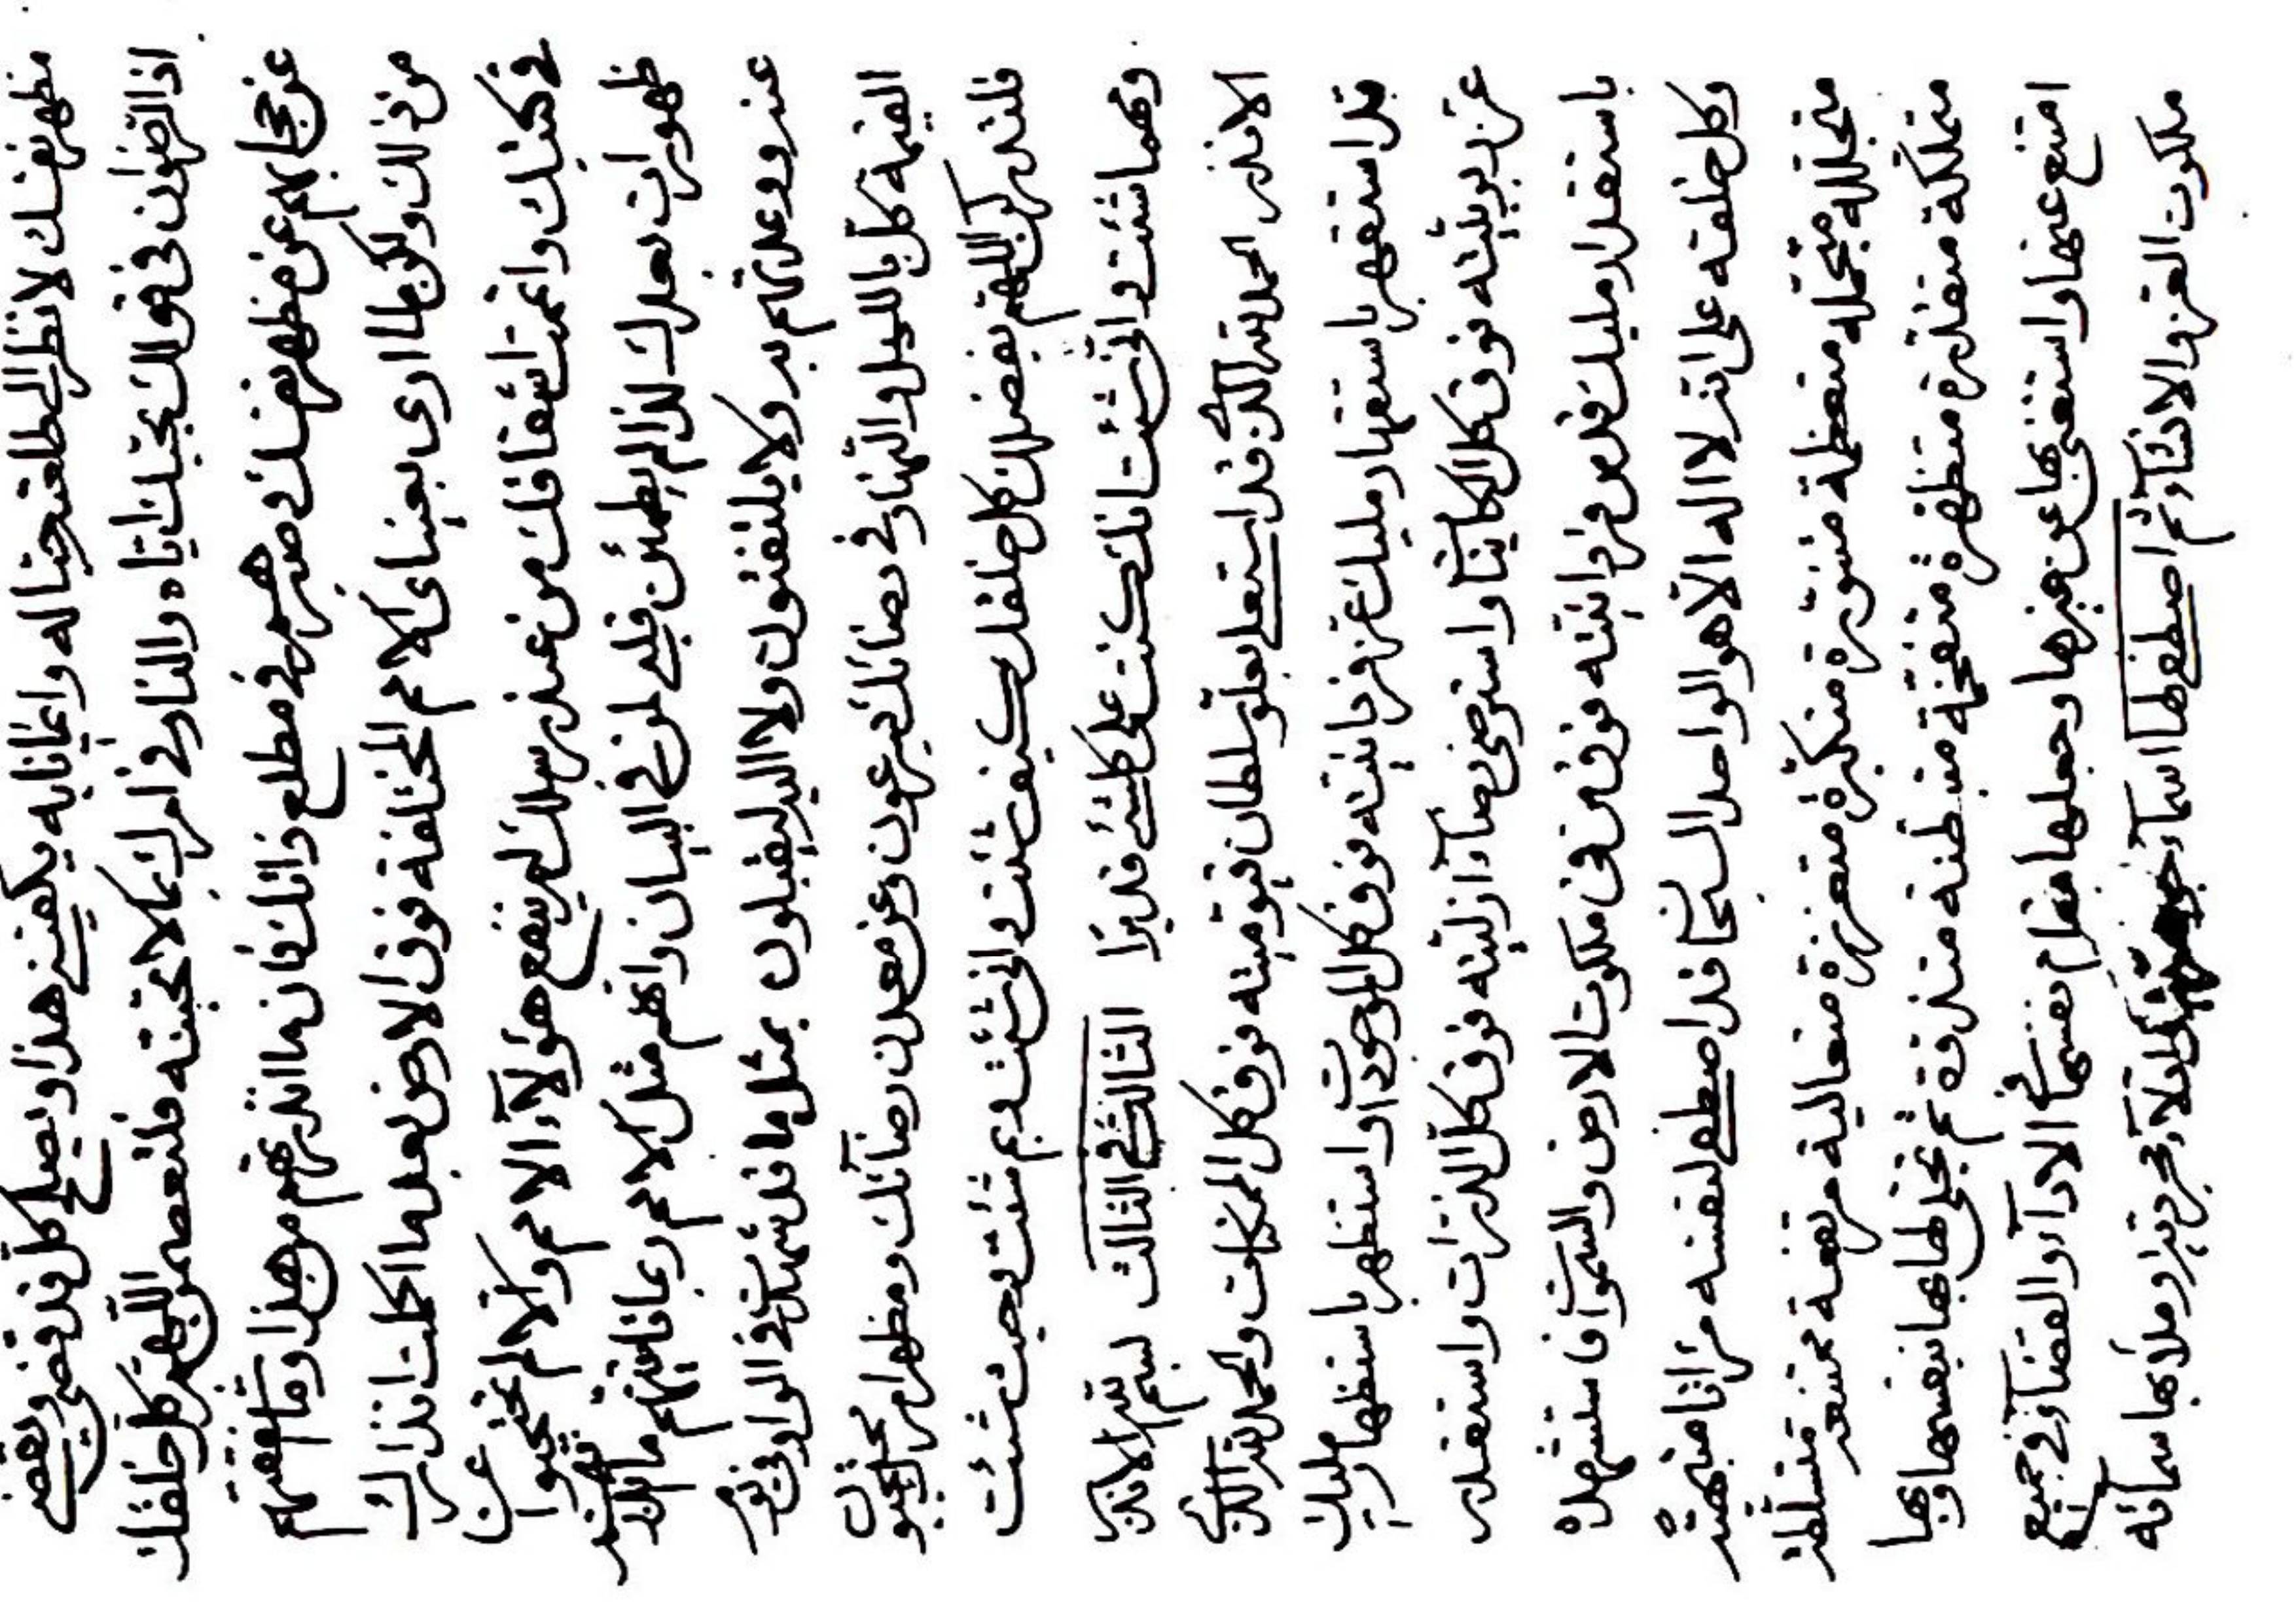 مظهر نفسك لا ينظر الى طلعته حبا له وايمانا به يكفينه هذا ويصلح كل قد قضى ويقضى
اذا لتضون في قولك بحبك اياه والنار في امرك بما لا تحبنه فلتعصمن اللهم كل خلقك
عن حجابهم عن مظهر نفسك وصبرهم في مطلع ذاتك فان ما انذرتهم من هذا وما تنفعهم
من ذلك ولكن لما ارى بعيناى الامم المختلفة فوق الارض بعد ما اكملت انذارك
في كتبك واتممت اشفاقك من عند رسلك لم ينفع هؤلاء الامم والا لم يحتجبوا عن
ظهورات بعدك لذا لم يطمئن قلبي لمن في البيان وانهم مثل الامم ربما تاتينهم ما انذر
عنه روعدتهم به ولا يلتفتون ولا اليه ليقبلون بمثل ما قد شهدت في الواو في يوم
القيمة كل بالليل والنهار في رضائك يدعون وعن معدن رضائك ومظهر امرك محتجبون
فلتدركن اللهم بفضلك كل خلقك كيف شئت وانى شئت وبم شئت وحيث شئت
ومهما شئت وانى شئت انك كنت على كلشئ قديرا الثالث في الثالث بسم الله الاقدر
الاقدر الحمد لله الذى قد استعلى بعلو سلطان قيوميته فوق كل الممكنات والحمد لله الذى
قد استقهر باستقهار مليك عز فردانيته فوق كل الموجودات واستظهر باستظهار مليك
عز ربوبيته فوق كل الكاينات واسترضى رضاء ازليته فوق كل الذرات واستقدر
باستقدار مليك قدس فردانيته فوق من في ملكوت الارض والسموات فاستشهده
وكل خلقه على انه لا اله الا هو الواحد السبحان قد اصطفى لنفسه مراتا متبهية
متجللة متجملة متعظمة متنورة متكبرة متعززة متعالية مرتفعة ممتنعة متسلطة
متملكة متقدرة متظهرة متفخمة متبطنة متذوقة ثم تجلى لها بها بنفسها وبها
امتنع عنها واستغنى بها عن غيرها وجعلها مقام نفسه في الاداء والقضاء في جميع
ملكوت العز والانشاء ثم اصطفى لها اسماء وملأ بها سمائه